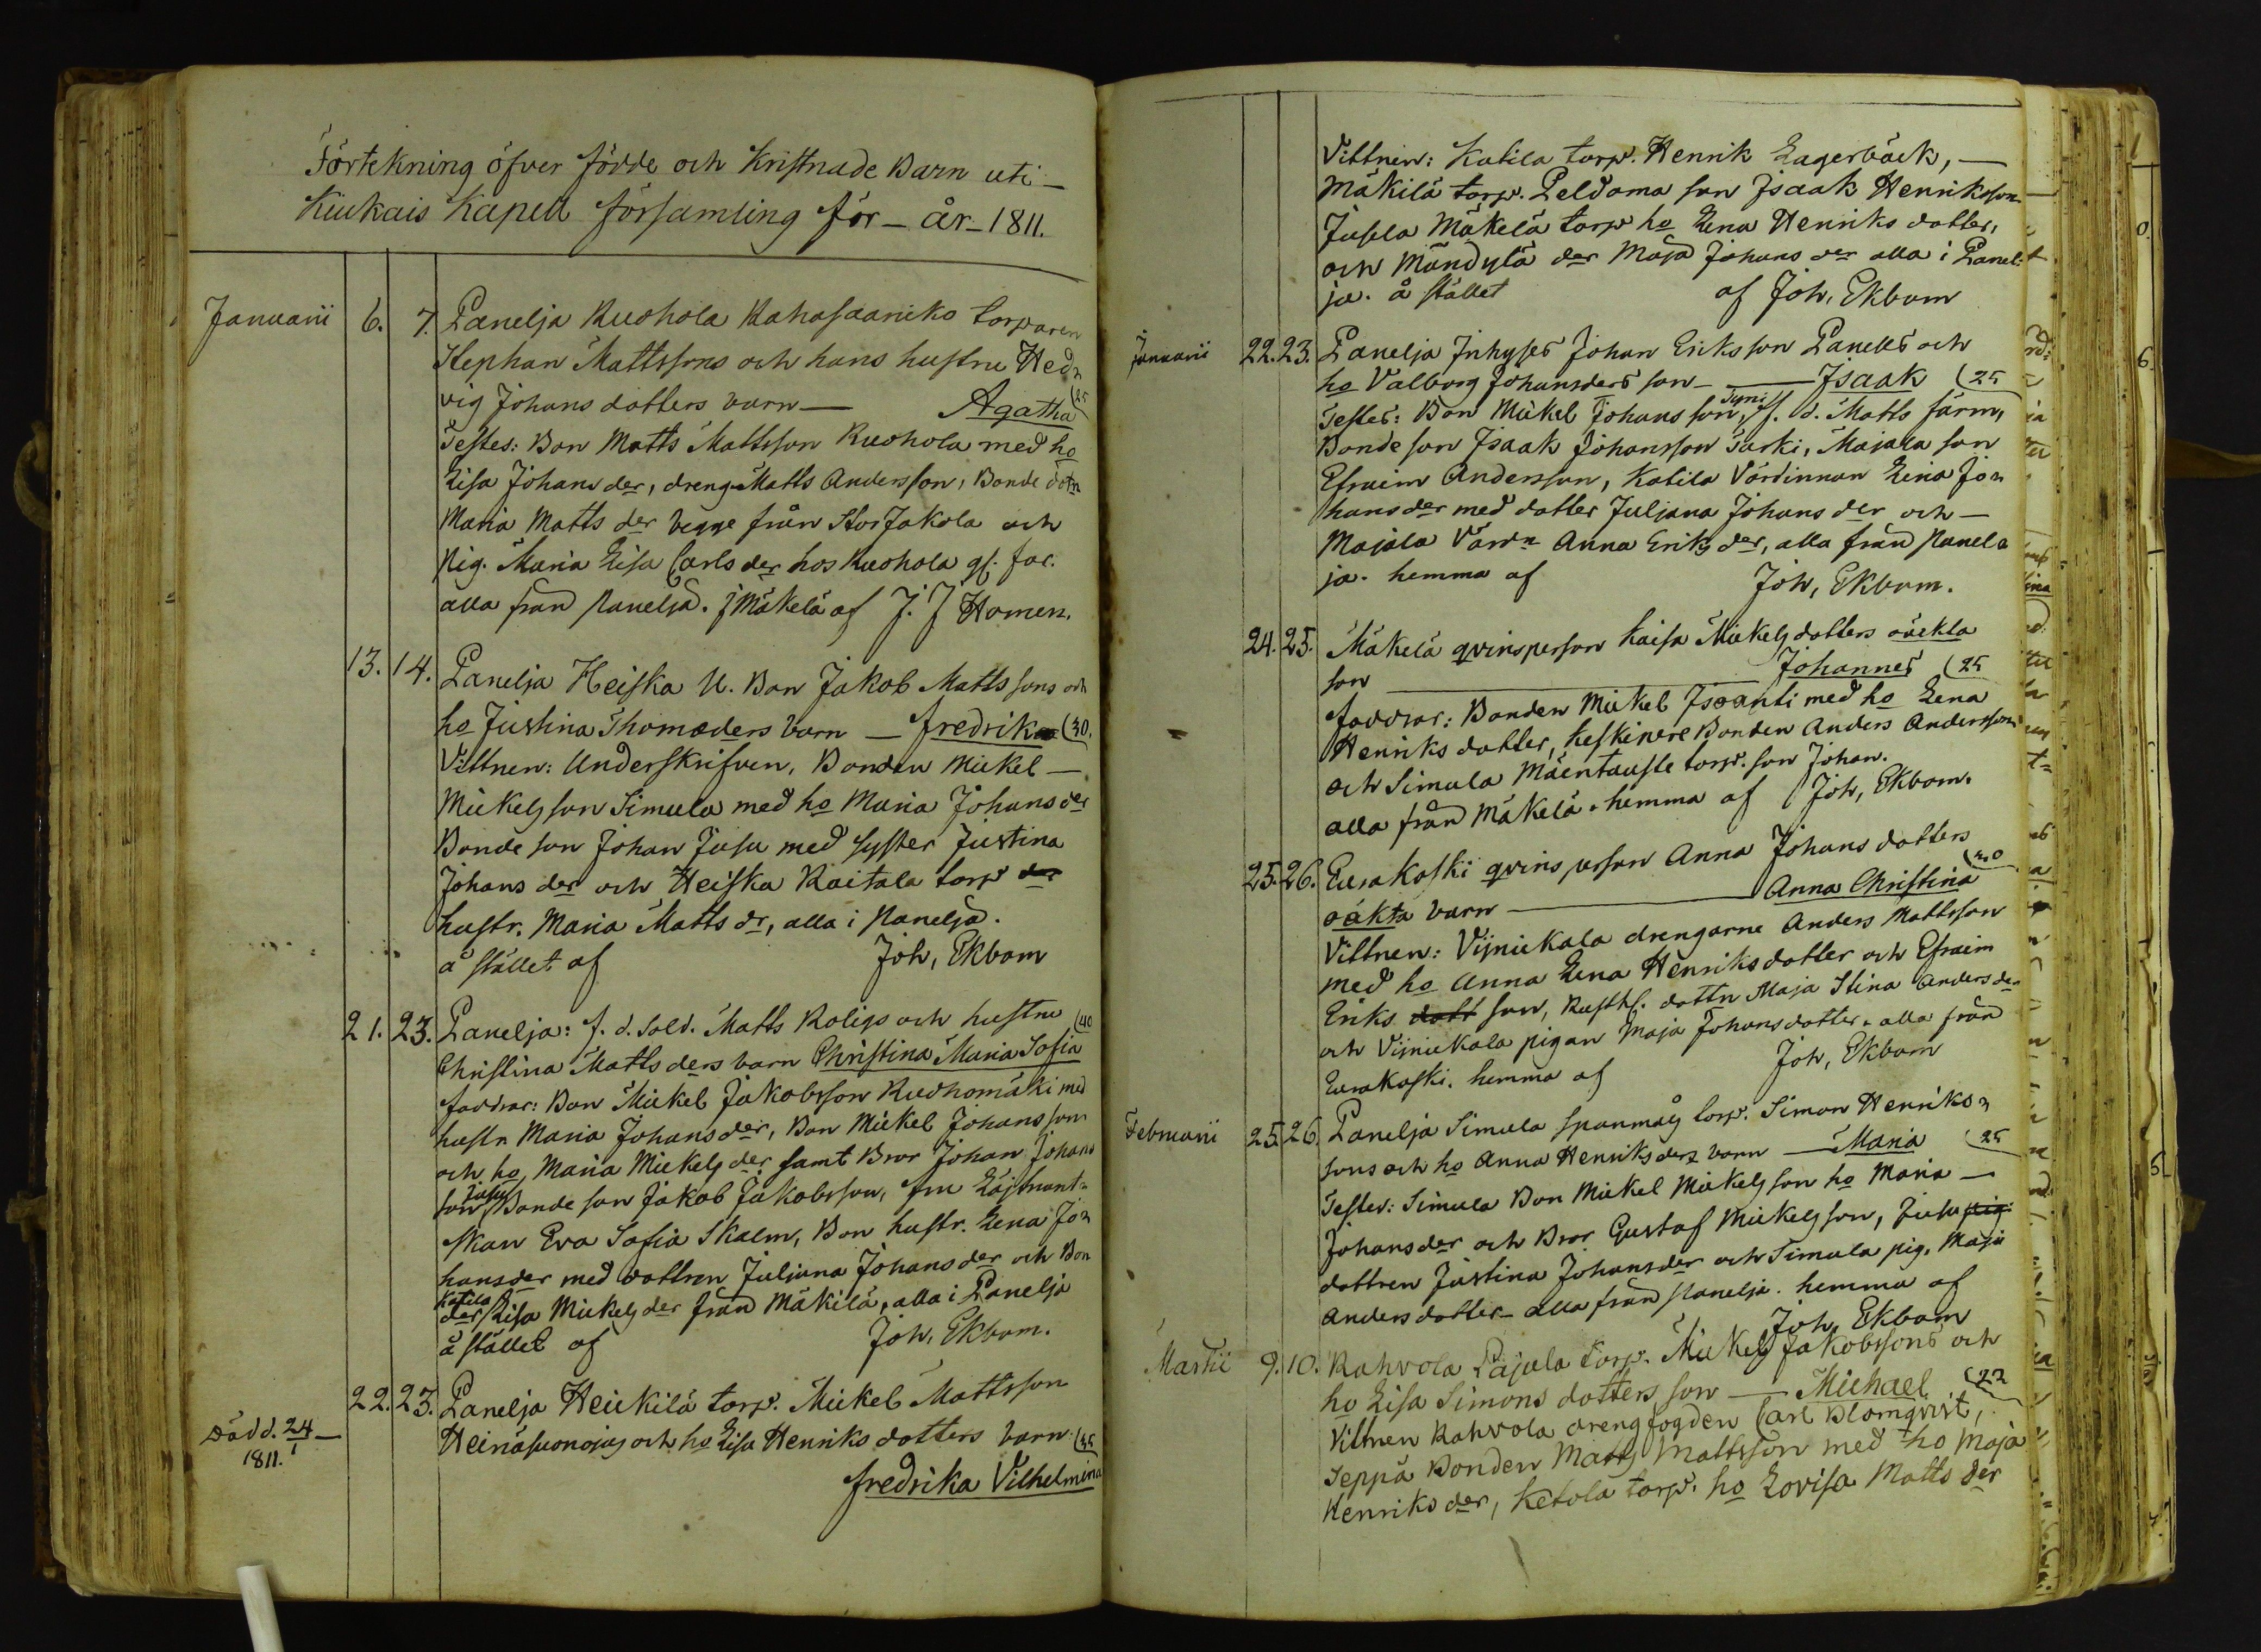 Förtekning öfver födde och Kristnade Barn uti
Kiukais Kapell församling för – år – 1811.
Januarii 6. 7. Panelja Kuohola Kahasaaniko torparen
Stephan Mattssons och hans hustru Hed=
vig Johans dotters barn — Agatha (25
Testes: Bon Matts Mattsson Kuohola med ho
Lisa Johans der, dreng Matts Andersson, Bonde dotn
Maria Matts der begge från StorJakola och
Pig. Maria Lisa Carls der hos Kuohola
alla från Panelja. J Mäkelä af J. J Homen.
13. 14. Panelja Heiska N. Bon Jakob Mattssons och
ho Justina Thomæders barn — Fredrik (30.
Vittnen: Underskrifven, Bonden Mickel —
Mickels son Simula med ho Maria Johans der
Bonde son Johan Jusu med syster Justina
Johans der och Heiska Raitala torp der
hustr. Maria Matts dr, alla i Panelja.
å stället af Joh, Ekbom
21. 23. Panelja: f. d. sold. Matts Roligs och hustru (40
Christina Matts ders barn Christina Maria Sofia
faddrar: Bon Mickel Jakobsson Kuohomäki med
hustr Maria Johans der, Bon Mickel Johansson
och ho Maria Mickels der samt Bror Johan Johans
son Jusu Bonde son Jakob Jakobsson, fru Löjtnant=
skan Eva Sofia Skalm, Bon hustr. Lena Jo=
hansder med dottren Juljana Johans der och Bon
Katila der Lisa Mickels der från Mäkilä, alla i Panelja
å stället af Joh, Ekbom.
22. 23. Panelja Heickilä torp. Mickel Mattsson
Heinäsuonojas och ho Lisa Henriks dotters barn (35
Fredrika Vilhelmina
Död d. 24/1
1811.
Vittnen: Katila torp. Henrik Lagerbäck, —
Mäkilä torp. Peldoma son Isaak Henriksson
Jusela Mäkelä torp ho Lena Henriks dotter,
och Mändylä der Maja Johans der alla i Panel=
ja. å stället af Joh, Ekbom
Januarii 22. 23. Panelja Inhyses Johan Eriksson Panells och
ho Valborg Johansders son — Isaak (25
Testes: Bon Mickel Johansson Syni, f. d. Matts Färm,
Bonde son Isaak Johansson Sarki, Majala son
Efraim Andersson, Katila Värdinnan Lena Jo=
hans der med dotter Juljana Johans der och —
Majala Värdn Anna Eriks der, alla från Panel=
ja. hemma af Joh, Ekbom.
24. 25. Mäkelä qvinsperson Kaisa Mickels dotters oäckta
son — Johannes (25
faddrar: Bonden Mickel Isoanti med ho Lena
Henriks dotter, Keskivere Bonden Anders Andersson
och Simula Mäentauste torp. son Johan.
alla från Mäkelä. hemma af Joh, Ekbom.
25. 26. Eurakoski qvinsperson Anna Johans dotters
oäkta barn — Anna Christina (20
Vittnen: Vijnickala drengarne Anders Mattsson
med ho Anna Lena Henriks dotter och Efraim
Eriks dott son, Rusth. dottn Maja Stina Anders der
och Vijnickala pigan Maja Johansdotter. alla från
Eurakoski. hemma af Joh, Ekbom
Februarii 25. 26. Panelja Simula spanmåg torp. Simon Henriks=
sons och ho Anna Henriks ders barn — Maria (25
Testes: Simula Bon Mickel Mickels son ho Maria —
Johans der och Bror Gustaf Mickels son, Jusu pig.
dottren Justina Johansder och Simula pig. Maja
Anders dotter – alla från Panelja. hemma af
Joh, Ekbom
Martii 9. 10. Rahvola Pajula torp. Mickels Jakobssons och
ho Lisa Simons dotters son — Michael (22
Vittnen Rahvola drengfogden Carl Blomqvist,
Seppä Bonden Matts Mattsson med ho Maja
Henriks der, Ketola torp. ho Lovisa Matts der